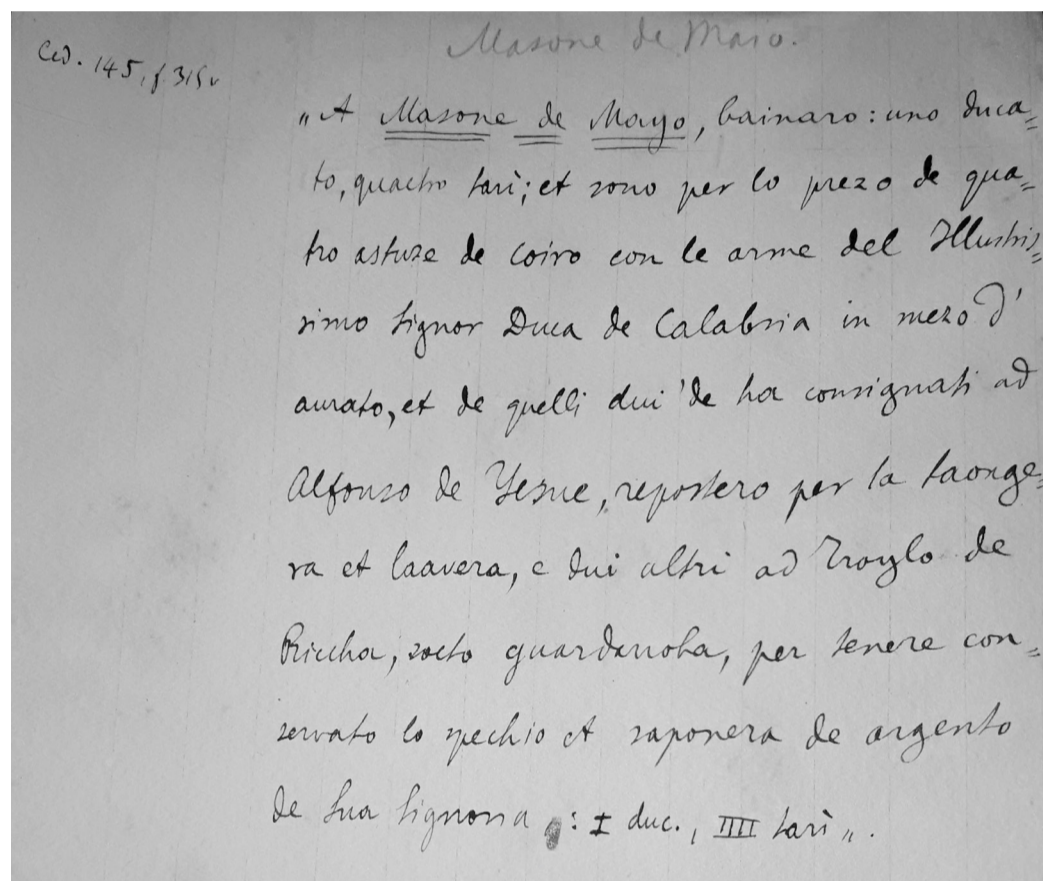 Masone de Maio.
Ced. 145, f. 315v
„A Masone de Mayo, bainaro: uno duca=
to, quactro tarì; et sono per lo prezo de qua=
tro astuze de coiro con le arme del Illustris=
simo Signor Duca de Calabria in mezo d'
aurato, et de quelli dui 'de ha consignati ad
Alfonso de Yesue, repostero per la taonge=
ra et laavera, e dui altri ad Troylo de
Riccha, socto guardarroba, per tenere con=
servato lo spechio et saponera de argento
de Sua Signoria : I duc., IIII tarì„.